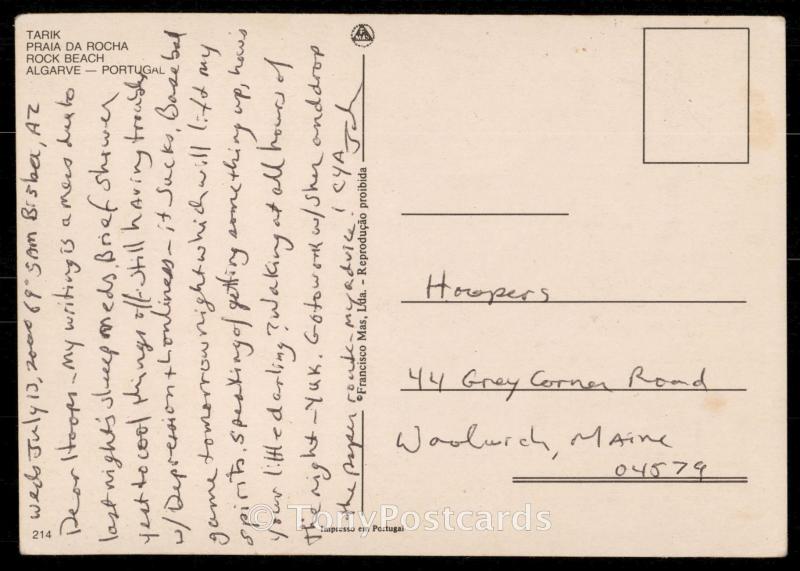 TARIK
PRAIA DA ROCHA
ROCK BEACH
ALGARVE — PORTUGAL
Weds July 13, 2000 69° 5AM Bisbee, AZ
Dear Hoops - My writing is a mess due to
last night's sleep meds. Brief shower
yest to cool things off. Still having trouble
w/ Depression + lonliness - it sucks. Baseball
game tomorrow night which will lift my
spirits. Speaking of getting something up, how's
your little darling? Waking at all hours of
the night - Yuk. Go to work w/ Sher and drop
the paper route - my advice! CYA
©Francisco Mas, Lda. - Reprodução proibida
MAS
Hoopers
44 Grey Corner Road
Woolwich, Maine
04579
214
Impresso em Portugal
© TonyPostcards